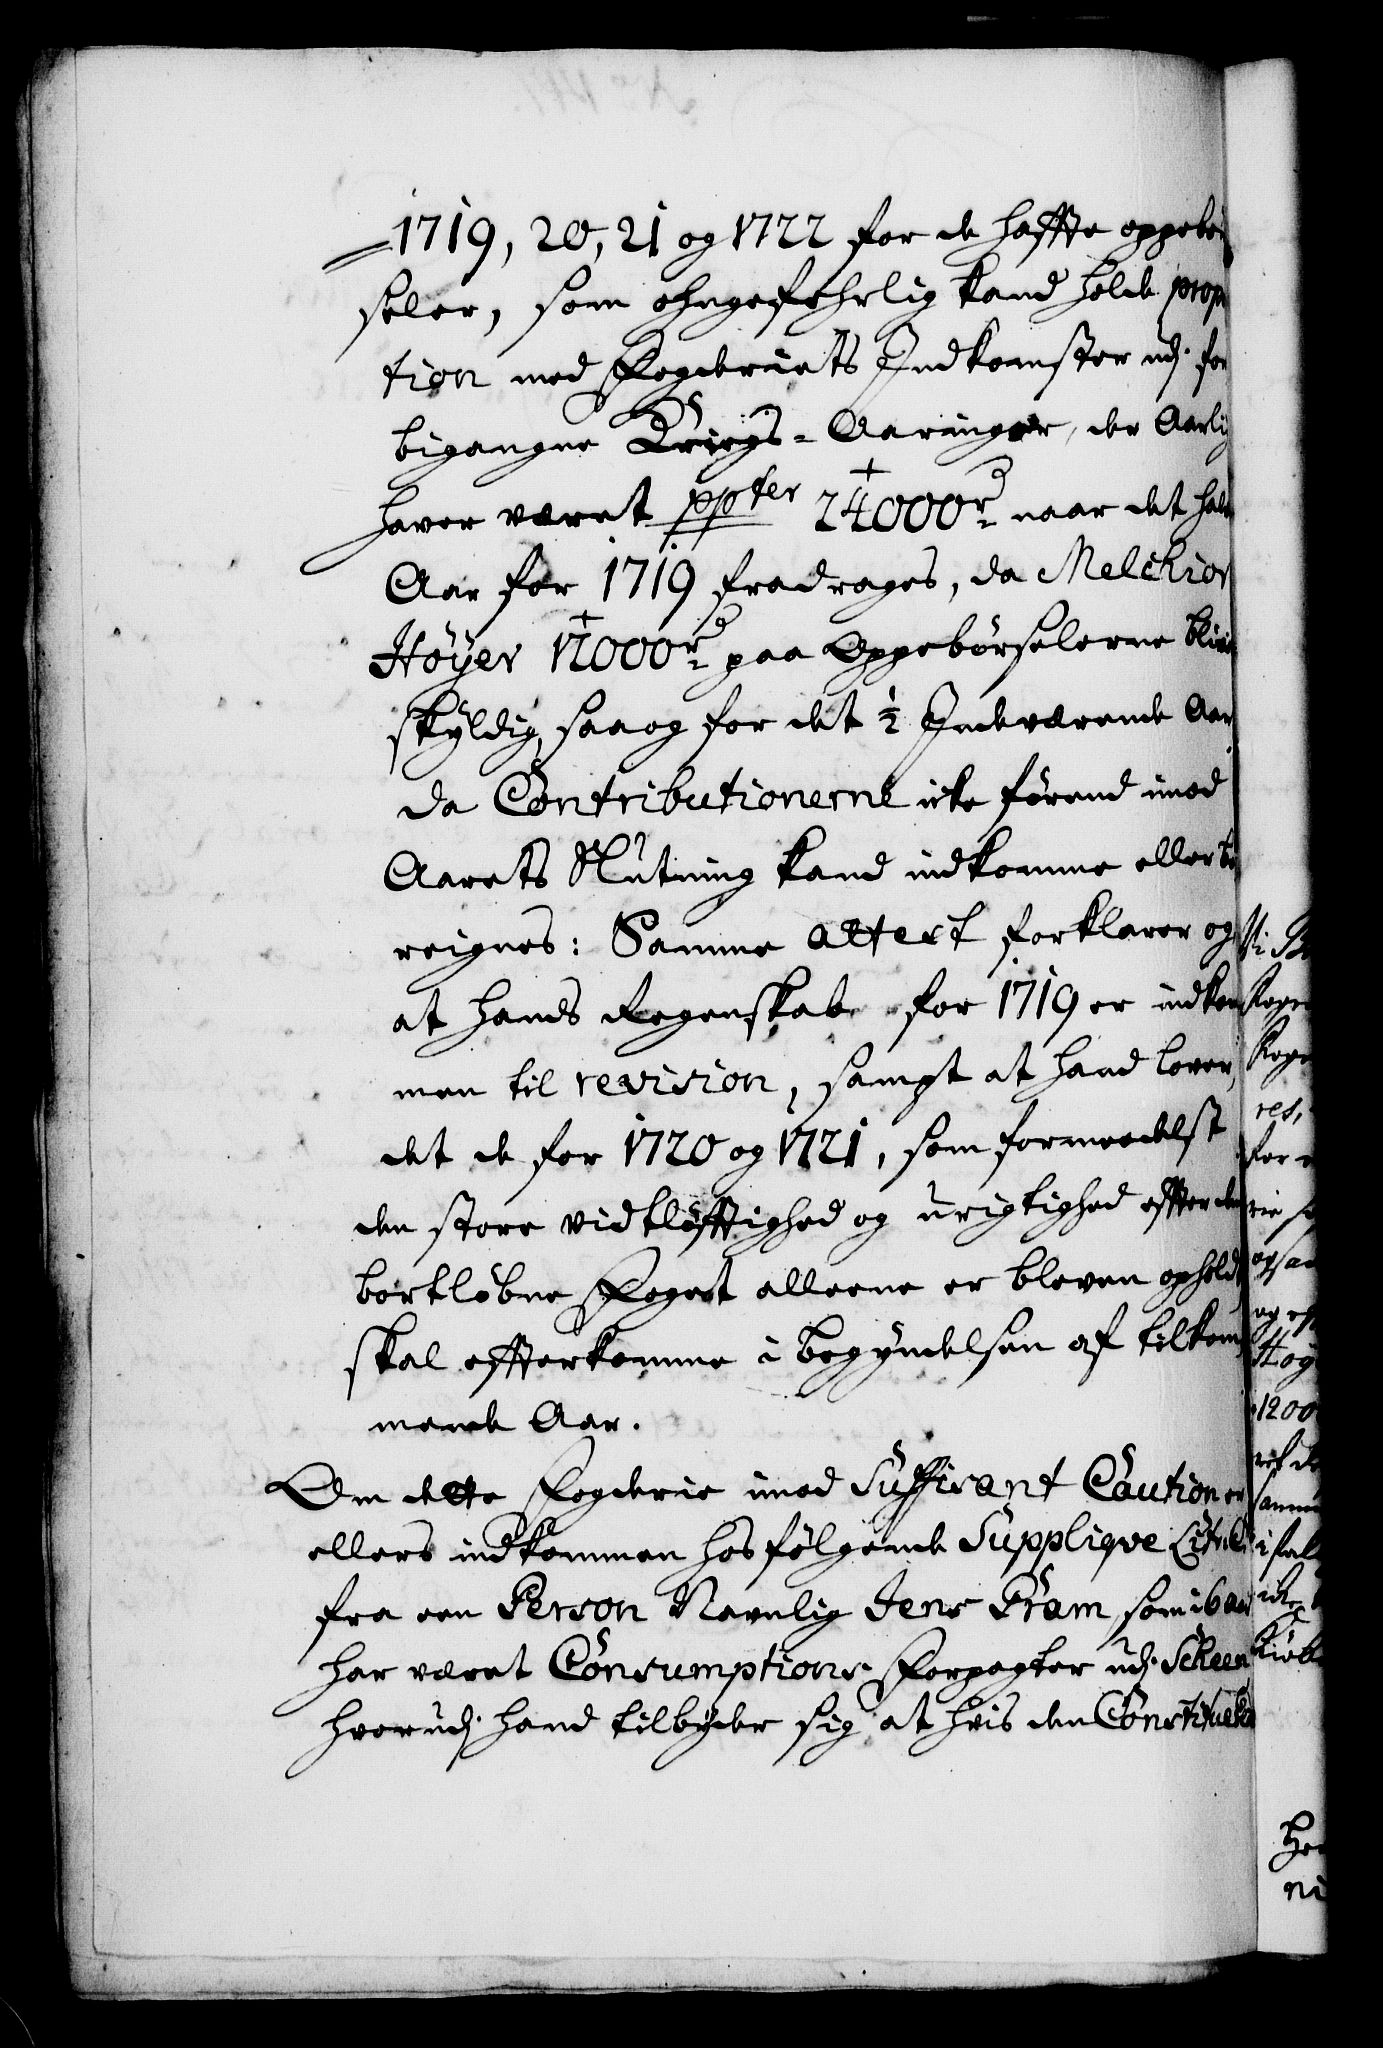 1719, 20, 21 og 1722 for de haffte oppebør
seler, som ohngefehrlig kand holde propr
tion med Fogderiets Indkomster udj for
bigangne Krigs-Aaringer, der Aarlig
haver været ppter 24000 rd naar det halve
Aar for 1719 fradrages, da Melchior
Höyer 12000 rd paa Oppebörselerne blive
skyldig, saa og for det ½ Indeværende Aar,
da Contributionerne icke förend imod
Aarets Slutning kand indkomme eller be
reignes: Samme attest forklarer og
at hands Regenskab for 1719 er indkom
men til revision, sampt at hand lover,
det de for 1720 og 1721, som formeedelst
den store vidtlöfftighed og urigtighed effter den
bortlöbne Foget alleene er bleven opholdt
skal effterkomme i begyndelsen af tilkom
mende Aar.
Om dette Fogderie imod Suffisant Caution er
ellers indkommen hosfölgende Supplique
fra een Person Navnlig Jens Pram, som i 6 aar
har været Consumptions-Forpagter udj Scheen
hvorudj hand tilbyder sig, at hvis den Constitueret